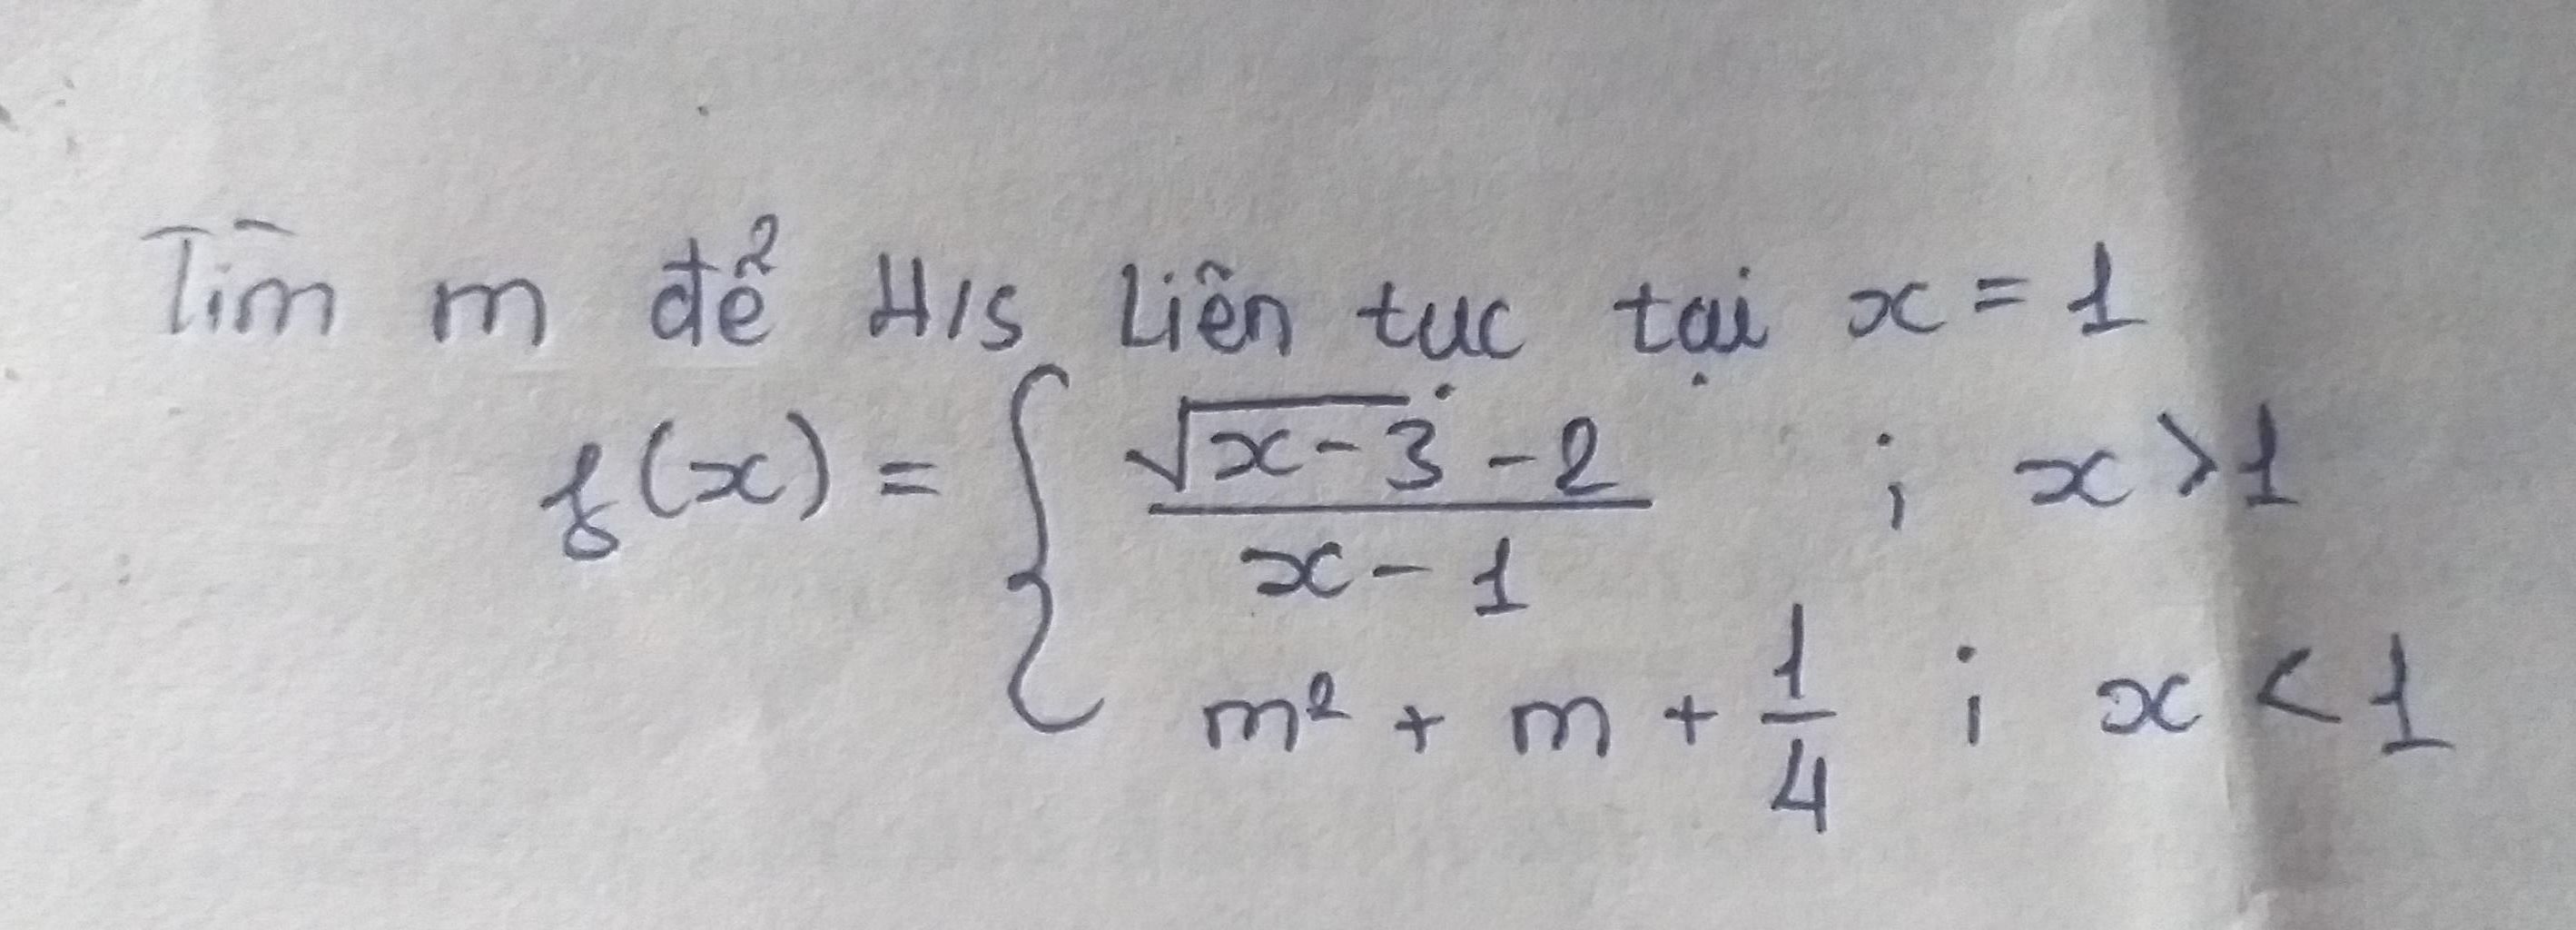 Tìm m để H/s Liên tục tại x = 1
f(x) = { (√(x-3) - 2)/(x - 1) ; x > 1
m² + m + 1/4 ; x < 1